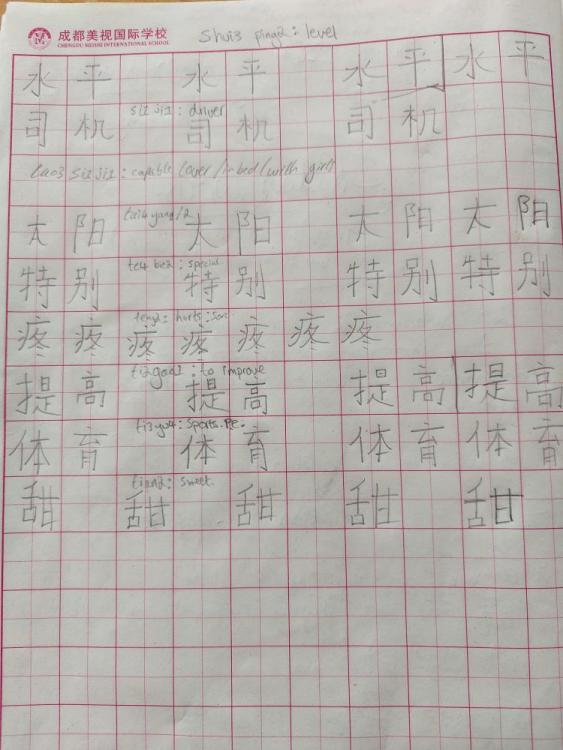 成都美视国际学校
CHENGDU MEISHI INTERNATIONAL SCHOOL
Shui3 ping2: level
水 平 水 平 水 平 水 平
si1 ji1: driver
司 机 司 机 司 机
lao3 si1 ji1: capable lover/in bed/with girls
tai4 yang1/2
太 阳 太 阳 太 阳 太 阳
te4 bie2: special
特 别 特 别 特 别 特 别
teng2: hurts:
疼 疼 疼 疼 疼 疼 疼
ti2gao1: to improve
提 高 提 高 提 高 提 高
ti3yu4: sports. P.e.
体 育 体 育 体 育 体 育
tian2: sweet
甜 甜 甜 甜 甜